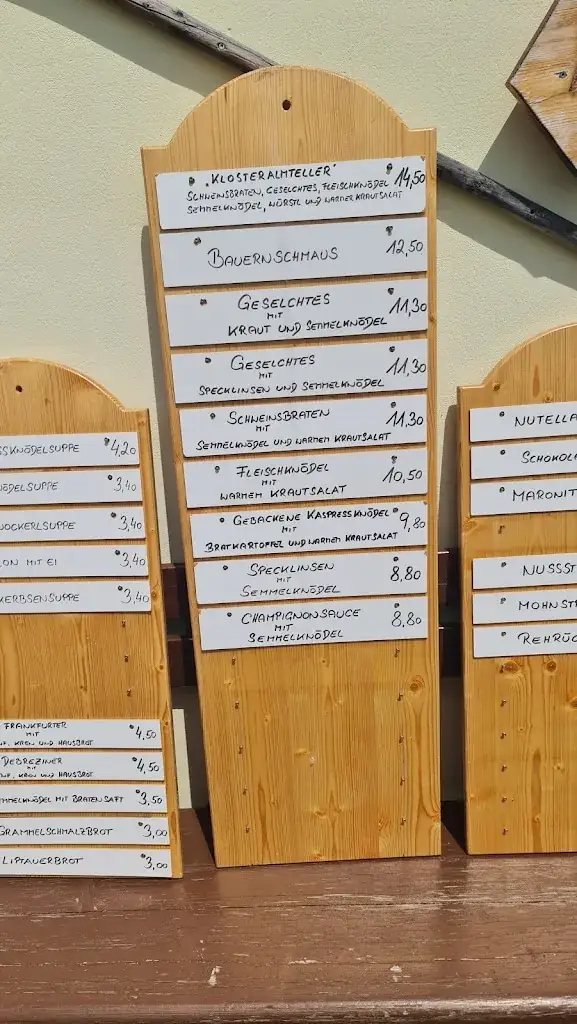 „KLOSTERALMTELLER" 14,50
SCHWEINSBRATEN, GESELCHTES, FLEISCHKNÖDEL
SEMMELKNÖDEL, WÜRSTL UND WARMER KRAUTSALAT
BAUERNSCHMAUS 12,50
GESELCHTES 11,30
MIT
KRAUT UND SEMMELKNÖDEL
GESELCHTES 11,30
MIT
SPECKLINSEN UND SEMMELKNÖDEL
SCHWEINSBRATEN 11,30
MIT
SEMMELKNÖDEL UND WARMEN KRAUTSALAT
FLEISCHKNÖDEL 10,50
MIT
WARMEM KRAUTSALAT
GEBACKENE KASPRESSKNÖDEL 9,80
MIT
BRATKARTOFFEL UND WARMEN KRAUTSALAT
SPECKLINSEN 8,80
MIT
SEMMELKNÖDEL
CHAMPIGNONSAUCE 8,80
MIT
SEMMELKNÖDEL
SSKNÖDELSUPPE 4,20
ÖDELSUPPE 3,40
OCKERLSUPPE 3,40
ON MIT EI 3,40
ERBSENSUPPE 3,40
FRANKFURTER 4,50
MIT
NF, KREN UND HAUSBROT
DEBREZINER 4,50
MIT
NF, KREN UND HAUSBROT
MMELKNÖDEL MIT BRATENSAFT 3,50
GRAMMELSCHMALZBROT 3,00
LIPTAUERBROT 3,00
NUTELLA
SCHOKOL
MARONIT
NUSSST
MOHNST
REHRÜC